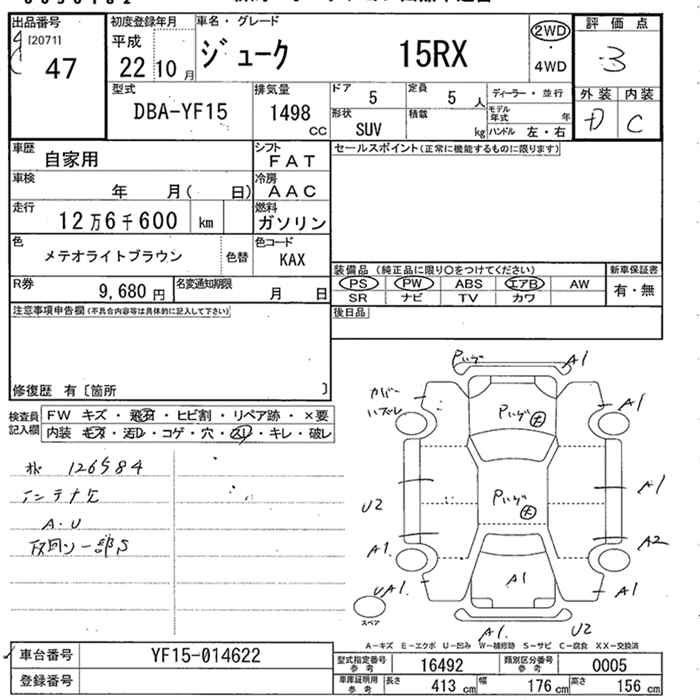 出品番号
[2071]
47
初度登録年月
平成
22 10 月
車名・グレード
ジューク 15RX
2WD
・
4WD
評価点
3
外装 内装
D C
型式
DBA-YF15
排気量
1498
CC
ドア
5
定員
5 人
ディーラー・並行
形状
SUV
積載
kg
モデル年式 年
ハンドル 左・右
車歴
自家用
シフト
FAT
セールスポイント(正常に機能するものに限ります)
車検
年 月( 日)
冷房
AAC
走行
12万6千600 km
燃料
ガソリン
色
メテオライトブラウン
色替
色コード
KAX
装備品 (純正品に限り〇をつけてください)
新車保証書
PS PW ABS エアB AW
SR ナビ TV カワ
有・無
R券
9,680 円
名変通知期限
月 日
後日品
注意事項申告欄(不具合内容等は具体的に記入して下さい)
修復歴 有[箇所 ]
検査員記入欄
FW キズ・飛石・ヒビ割・リペア跡・×要
内装 キズ・汚レ・コゲ・穴・スレ・キレ・破レ
126584
A・U
A1
カバー
ハズレ
A1
A1
U2
A1
A2
A1
UA1
A1
スペア
A1
U2
A-キズ E-エクボ U-凹み W-補修跡 S-サビ C-腐食 XX-交換済
車台番号
YF15-014622
登録番号
型式指定番号 参考
16492
類別区分番号 参考
0005
車庫証明用 参考
長さ 413 cm
幅 176 cm
高さ 156 cm